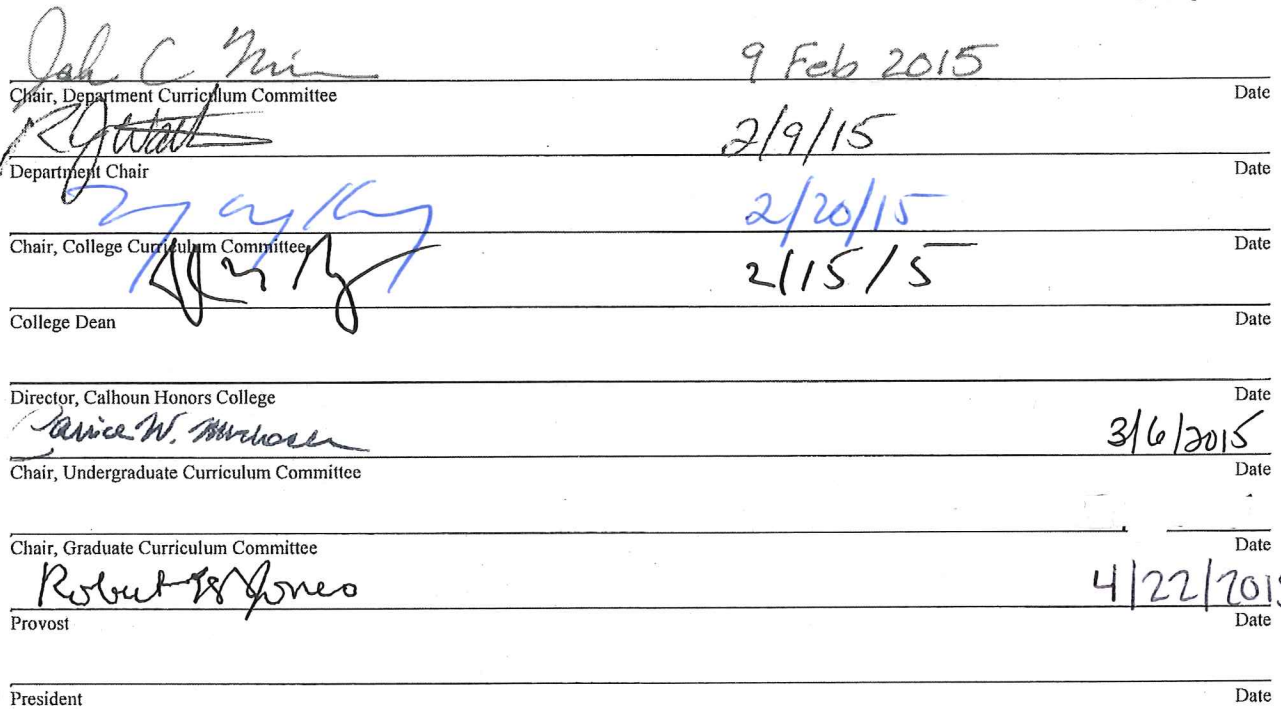 9 Feb 2015
Chair, Department Curriculum Committee Date
2/9/15
Department Chair Date
2/20/15
Chair, College Curriculum Committee Date
2/15/5
College Dean Date
Director, Calhoun Honors College Date
Janice W. 3/6/2015
Chair, Undergraduate Curriculum Committee Date
Chair, Graduate Curriculum Committee Date
Robert Jones 4/22/201
Provost Date
President Date